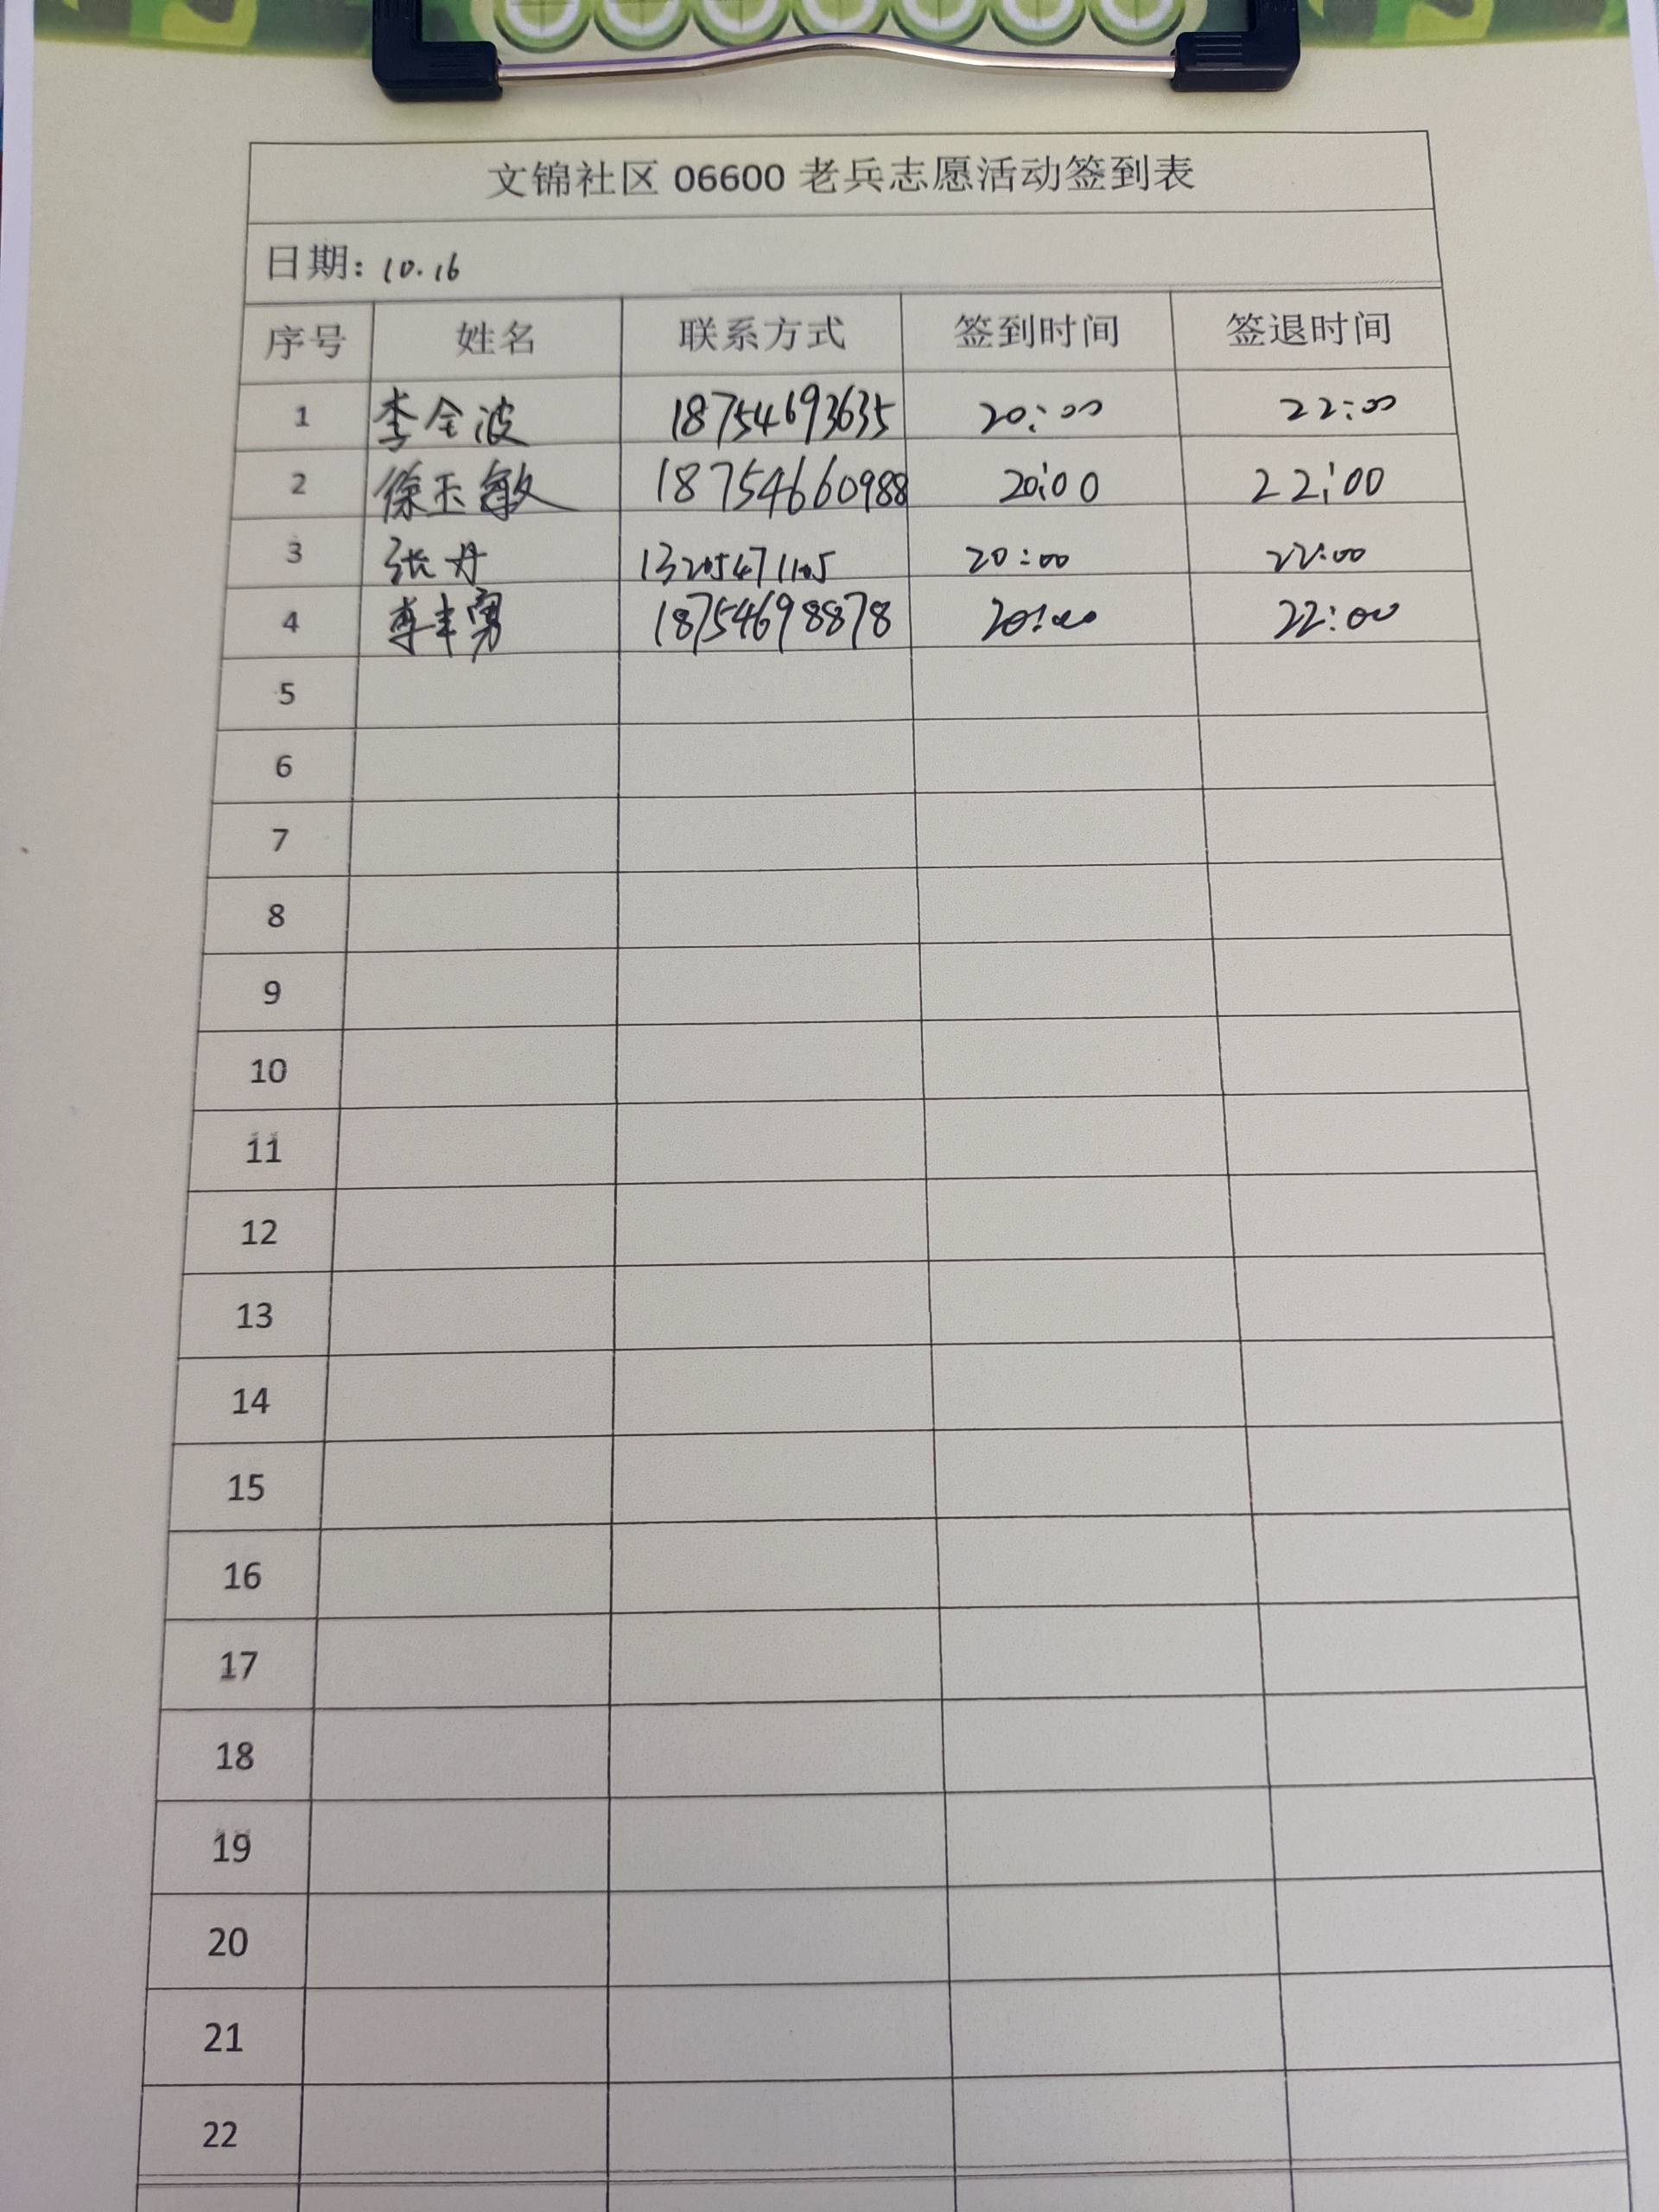 文锦社区 06600 老兵志愿活动签到表
日期: 10.16
序号 姓名 联系方式 签到时间 签退时间
1 李全波 18754693635 20:00 22:00
2 徐玉敏 18754660988 20:00 22:00
3 张丹 13205471105 20:00 22:00
4 李丰勇 18754698878 20:00 22:00
5
6
7
8
9
10
11
12
13
14
15
16
17
18
19
20
21
22